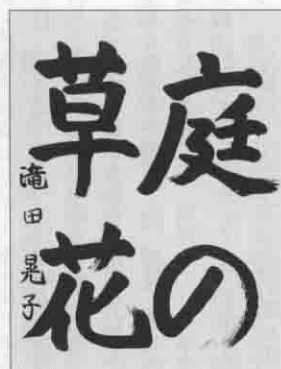 庭の
草花
滝田晃子